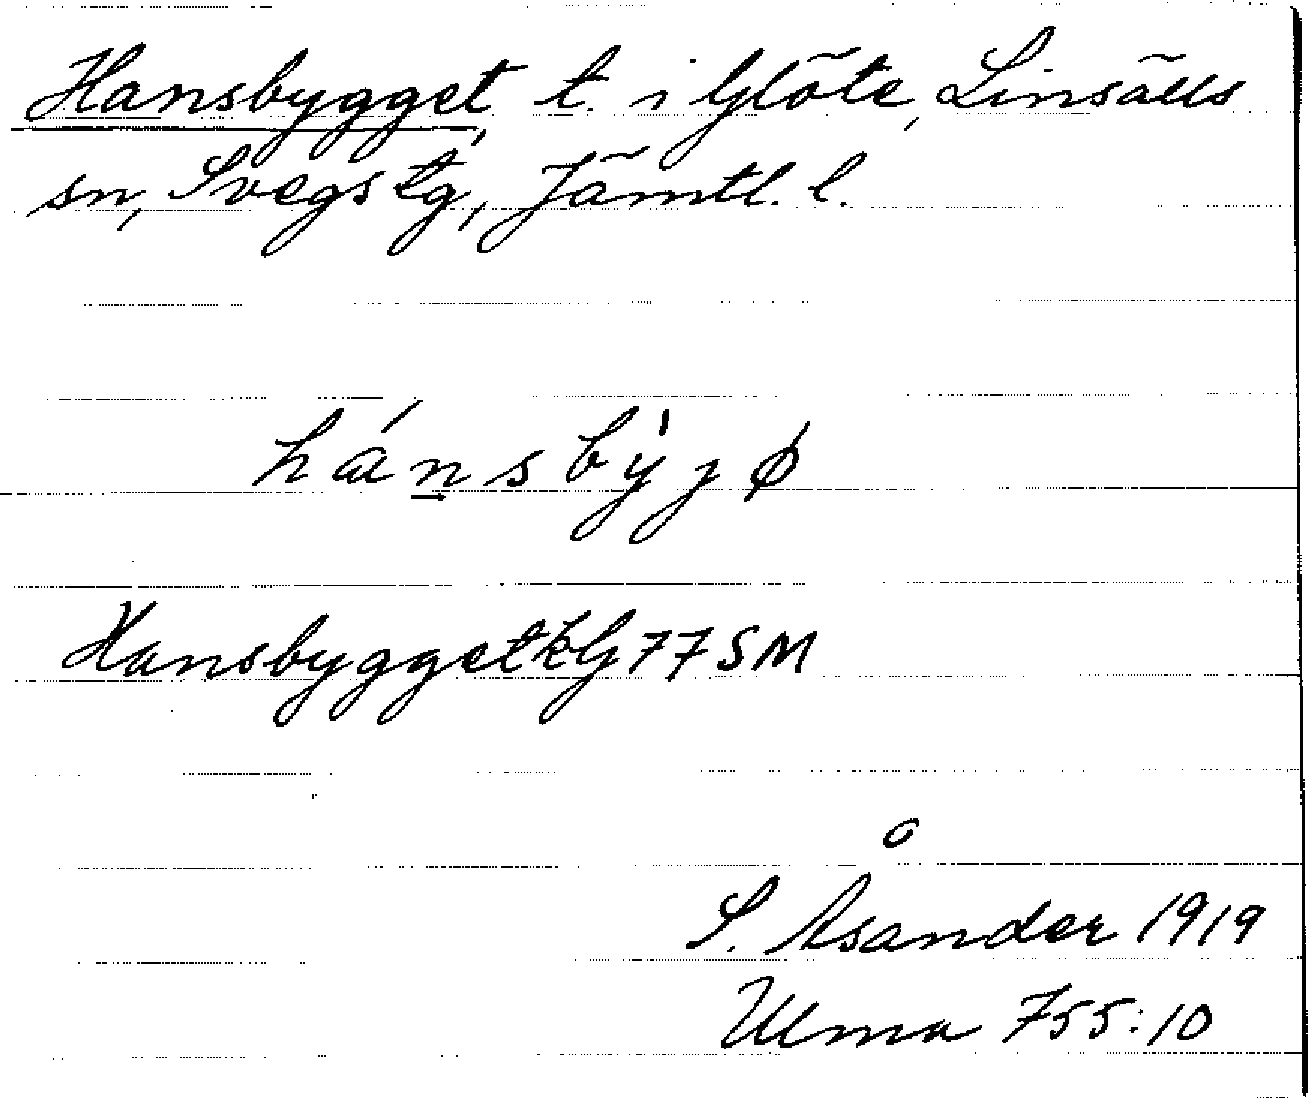 Hansbygget, t. i Glöte, Linsälls
sn, Svegs tg, Jämtl. l.
hánsbỳjø
Hansbygget kG 77 SM
S. Åsander 1919
Ulma 755:10